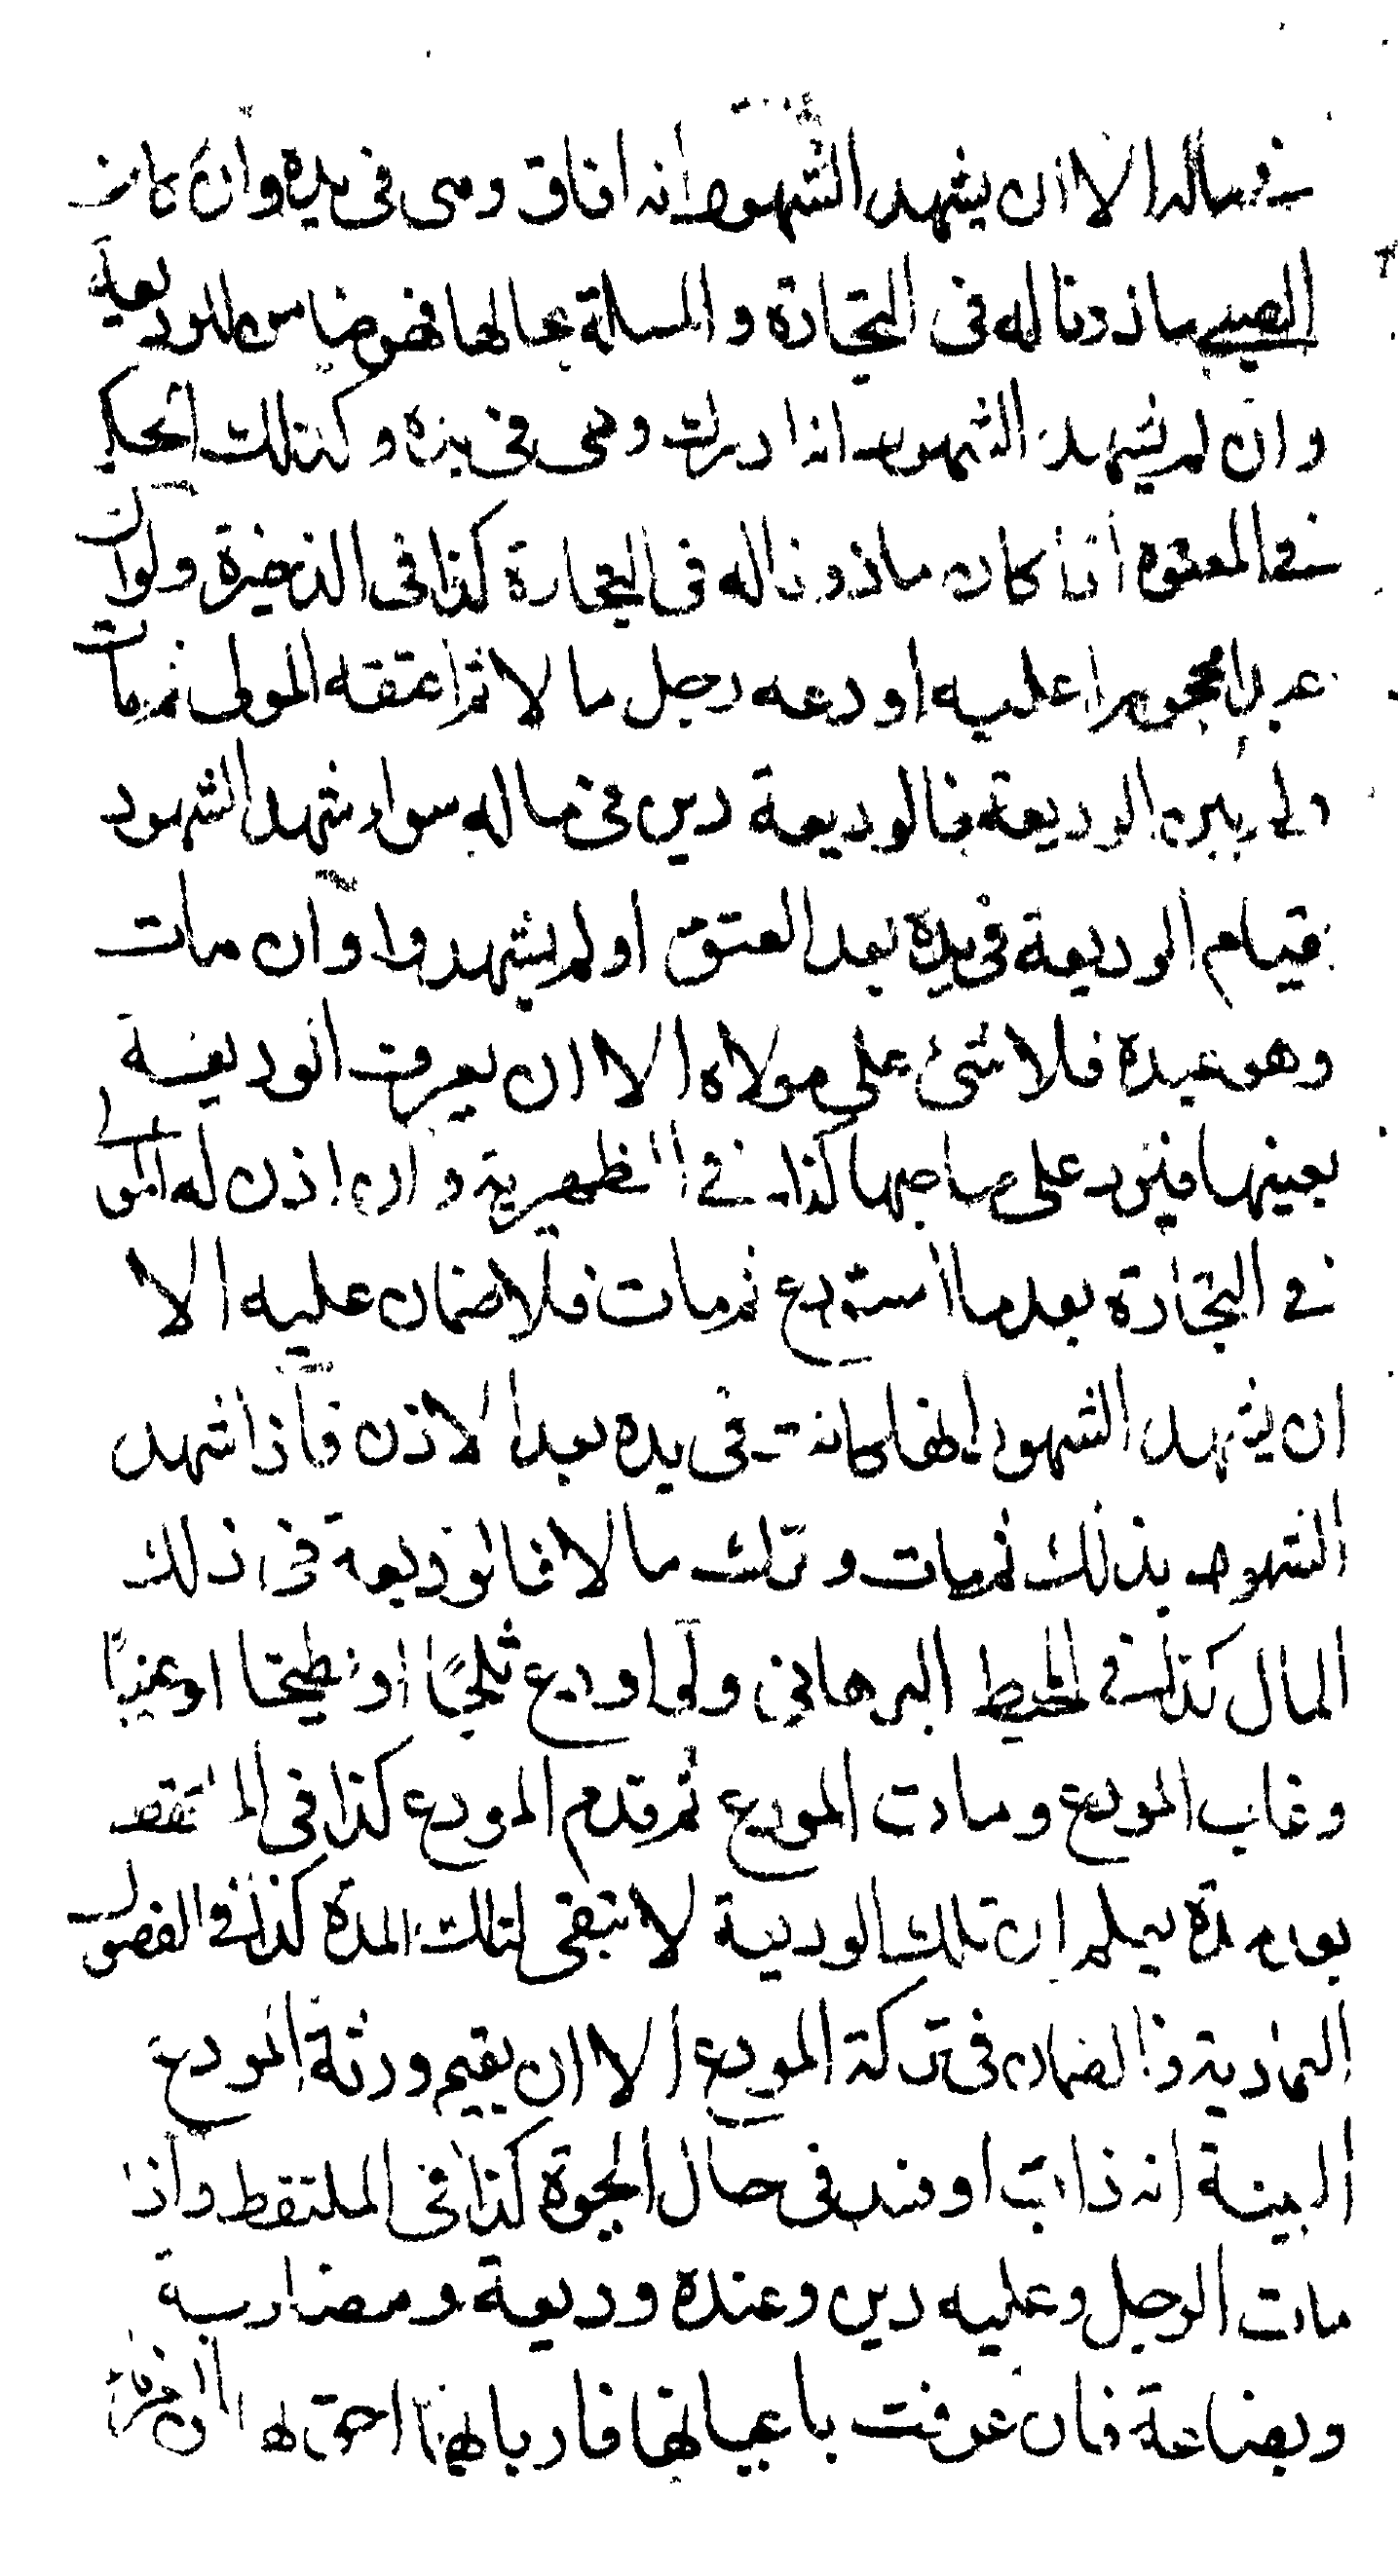 في ماله الا ان يشهد الشهود انه افاق وهي في يده وان كان
الصبي ماذونا له في التجارة والمسلة بحالها فهو ضامن للوديعة
وان لم يشهد الشهود انه ادرك وهي في يده وكذلك الحكم
في المعتوه اذا كان ماذونا له في التجارة كذا في الذخيرة ولو ان
عبدا محجورا عليه اودعه رجل مالا ثم اعتقه المولى ثم مات
ولم يبين الوديعة فالوديعة دين في ماله سواء شهد الشهود
بقيام الوديعة في يده بعد العتق او لم يشهدوا وان مات
وهو عبده فلا شئ على مولاه الا ان يعرف الوديعة
بعينها فيرد على صاحبها كذا في الظهيرية وان اذن له المولى
في التجارة بعد ما استودع ثم مات فلا ضمان عليه الا
ان يشهد الشهود انها كانت في يده بعد الاذن فاذا شهد
الشهود بذلك ثم مات وترك مالا فالوديعة في ذلك
المال كذا في المحيط البرهاني ولو اودع ثلجا او بطيخا او عنبا
وغاب المودع ومات المودع ثم قدم المودع كذا في الملتقط
بعد مدة يعلم ان تلك الوديعة لا تبقى لتلك المدة كذا في الفصول
العمادية فالضمان في تركة المودع الا ان يقيم ورثة المودع
البينة انه ذاب او فسد في حال الحيوة كذا في الملتقط واذا
مات الرجل وعليه دين وعنده وديعة ومضاربة
وبضاعة فان عرفت باعيانها فاربابها احق بها